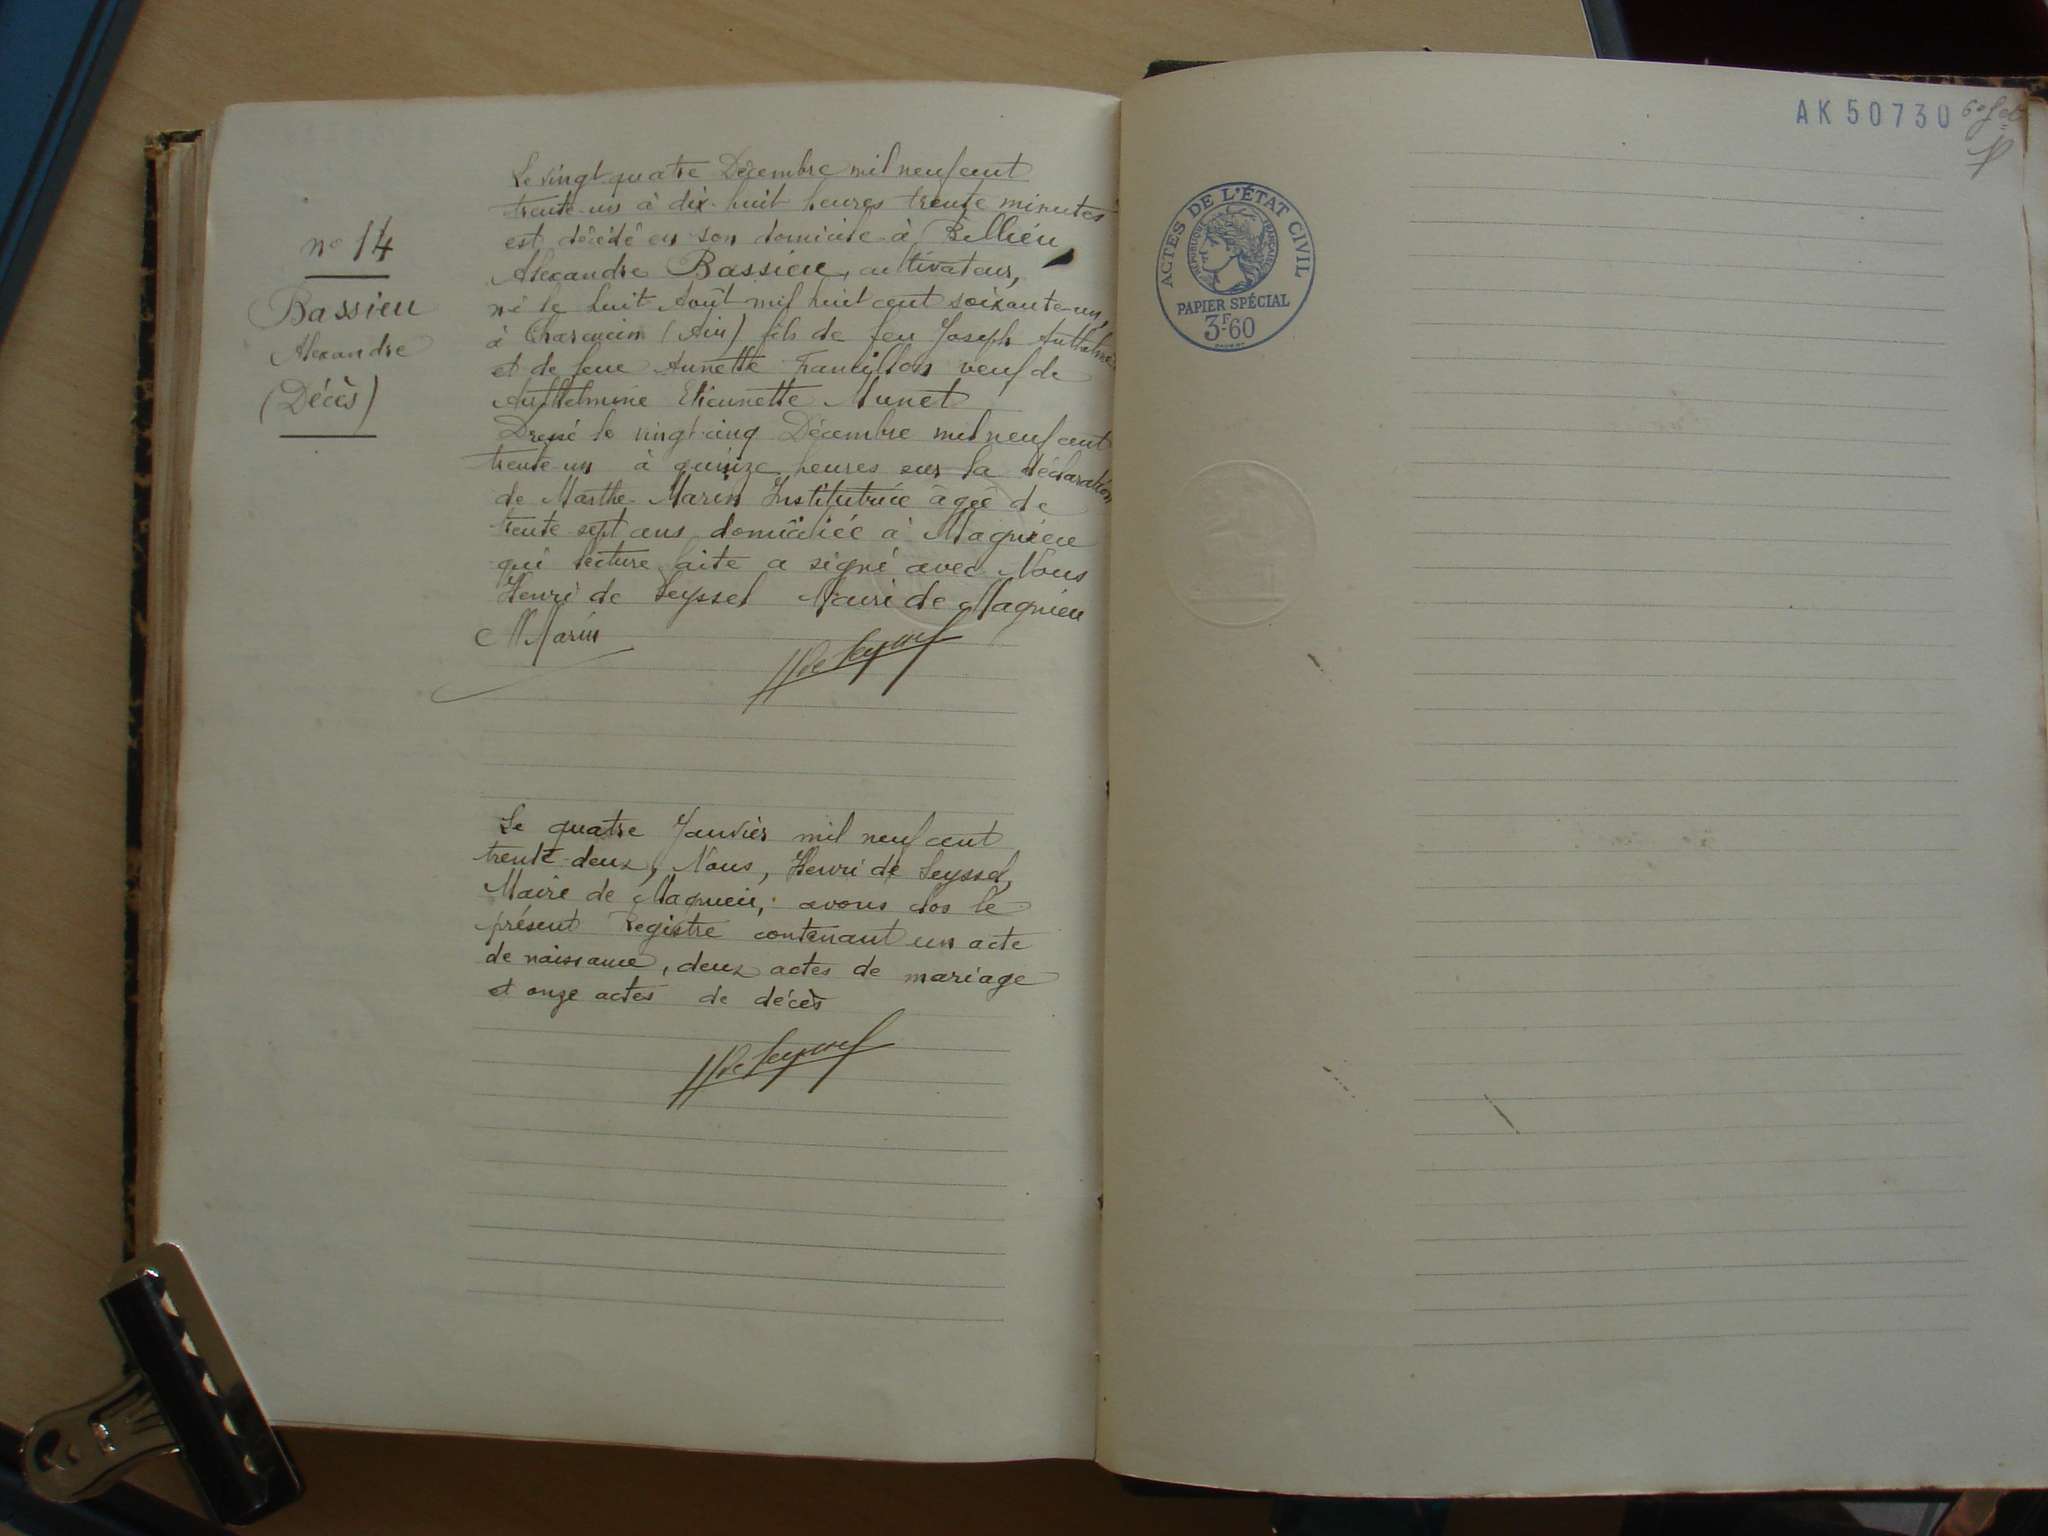 n° 14
Bassieu
Alexandre
(Décès)
Le vingt quatre Décembre mil neuf cent
trente-un à dix-huit heures trente minutes
est décédé en son domicile à Billieu
Alexandre Bassieu, cultivateur,
né le huit Août mil huit cent soixante-un,
à (Ain) fils de feu Joseph Anthelme
et de feue Annette Francillon veuf de
Anthelmine Etiennette Munet
Dressé le vingt-cinq Décembre mil neuf cent
trente-un à quinze heures sur la déclaration
de Marthe Marin Institutrice âgée de
trente sept ans domiciliée à Magnieu
qui lecture faite a signé avec Nous
Henri de Seyssel Maire de Magnieu
M Marin
H de Seyssel
Le quatre Janvier mil neuf cent
trente-deux, Nous, Henri de Seyssel,
Maire de Magnieu, avons clos le
présent Registre contenant un acte
de naissance, deux actes de mariage
et onze actes de décès
H de Seyssel
AK 50730
ACTES DE L'ÉTAT CIVIL
RÉPUBLIQUE FRANÇAISE
PAPIER SPÉCIAL
3F.60